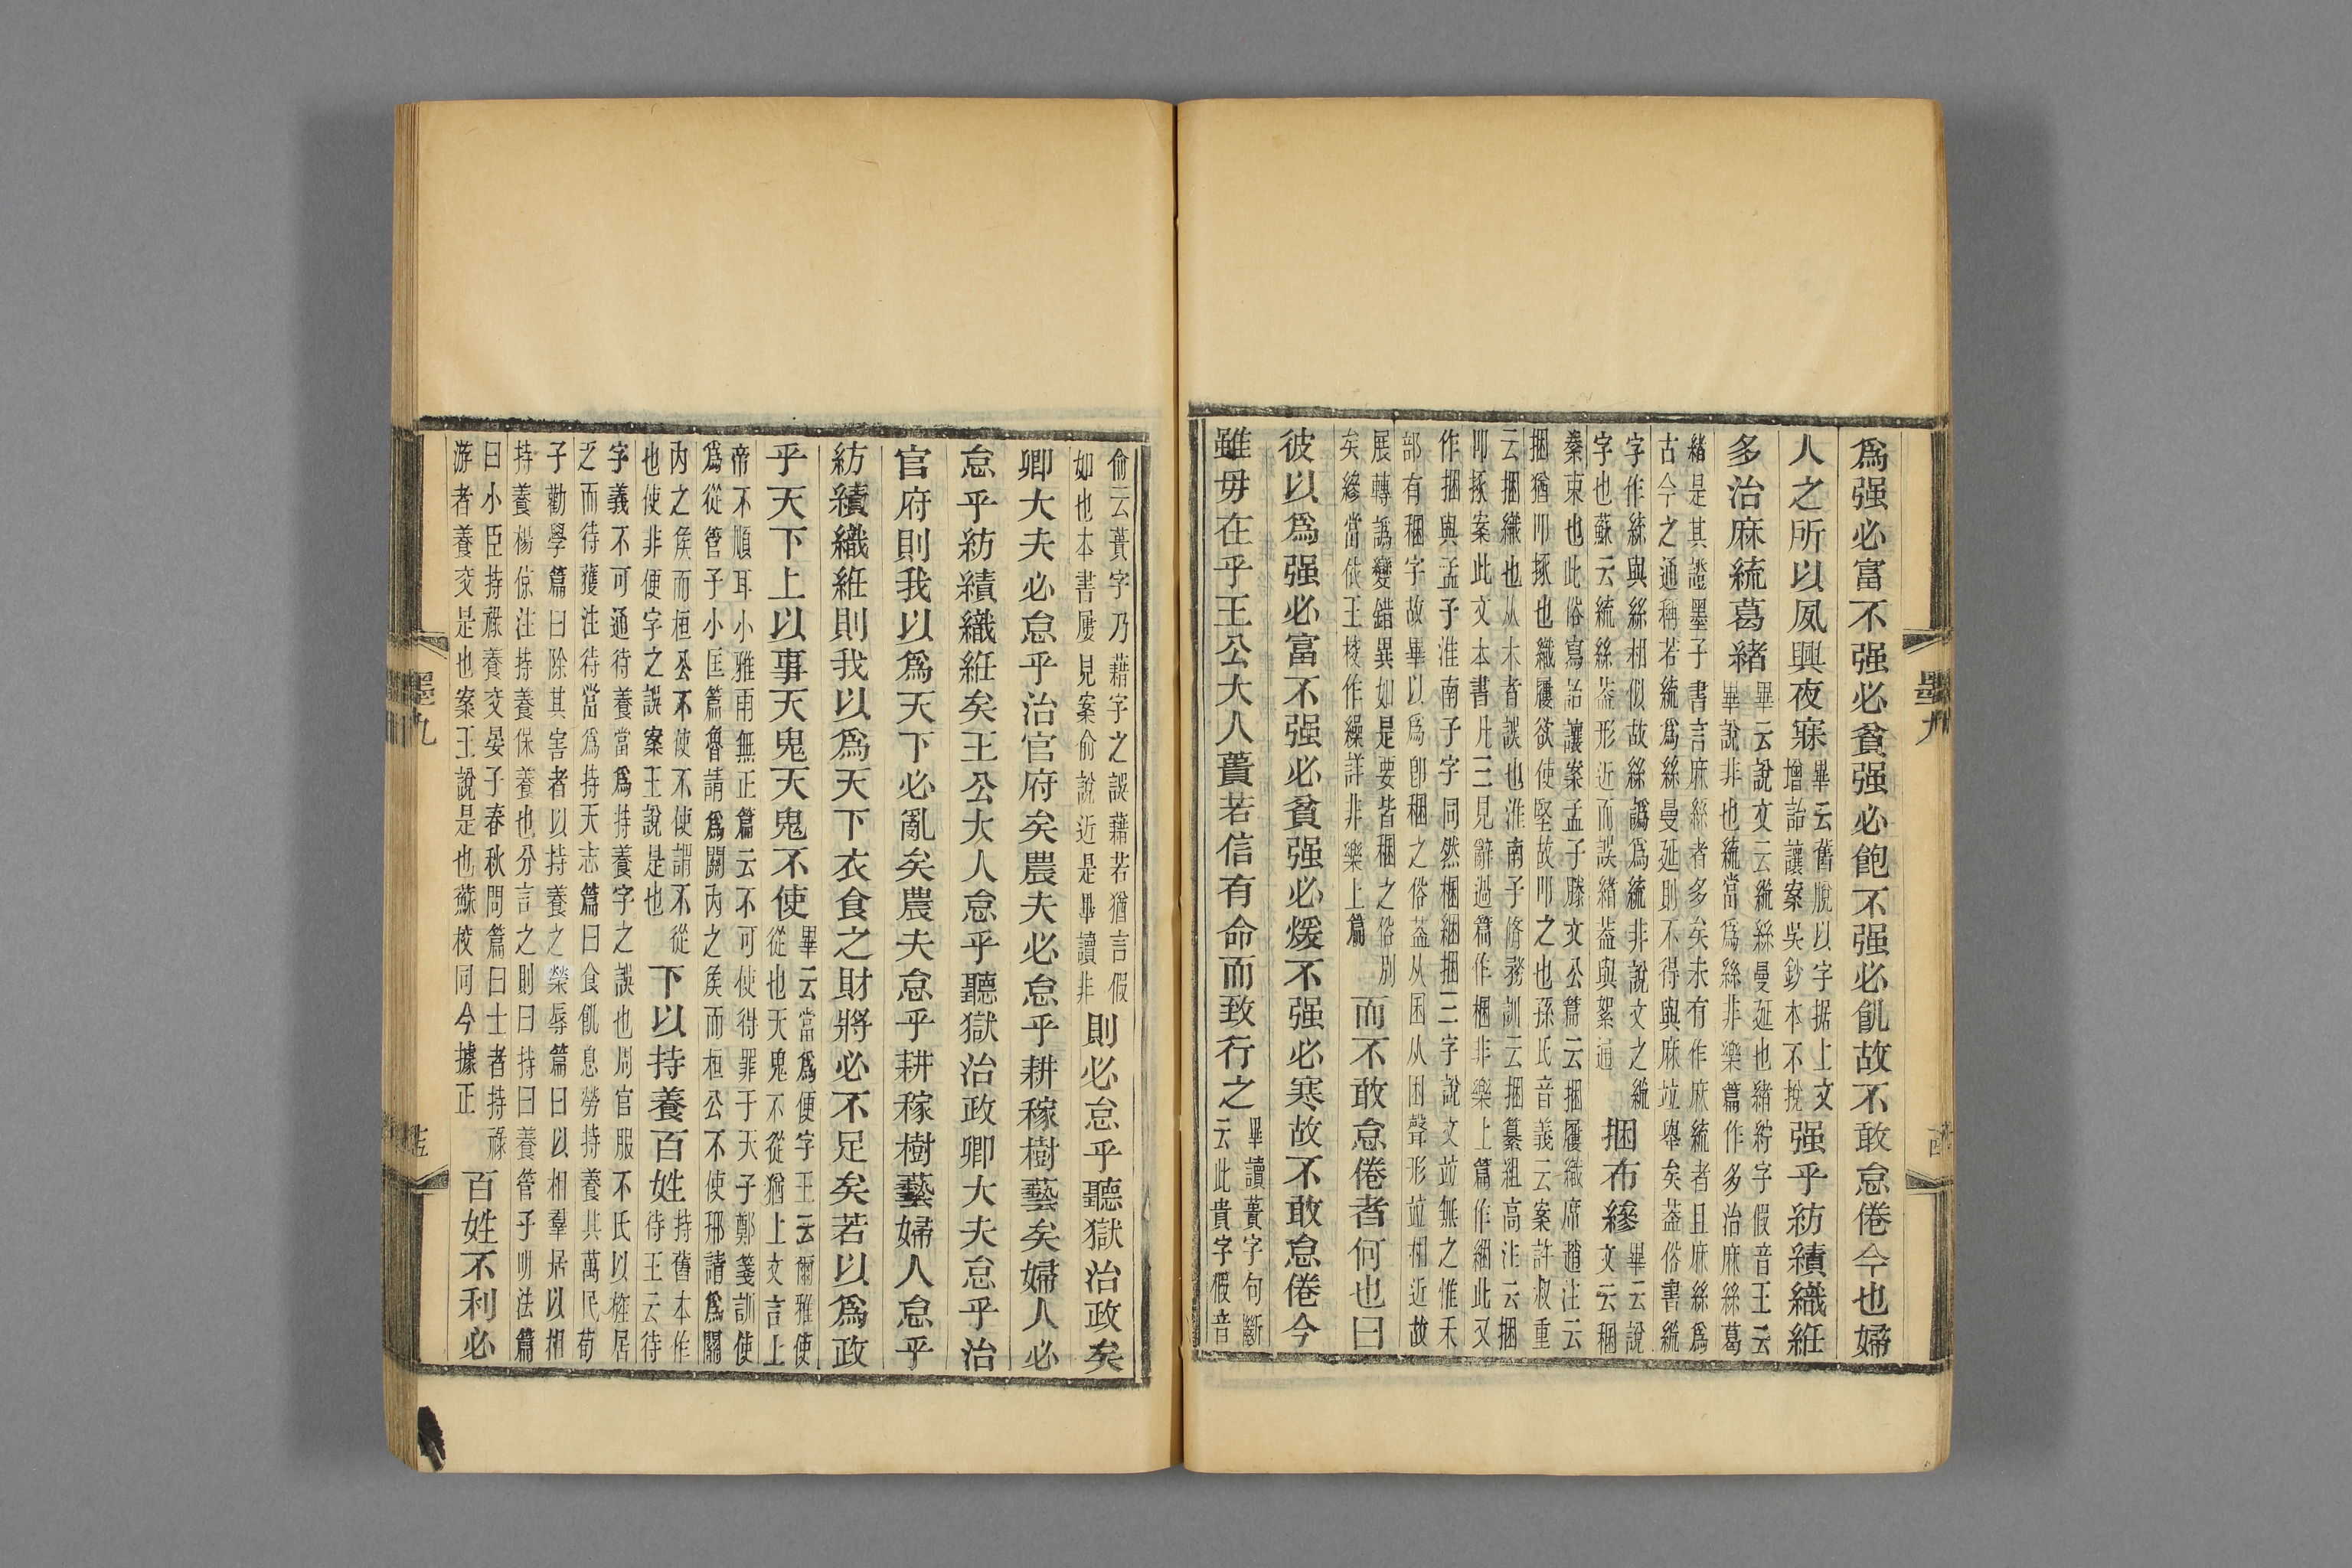 爲强必富不强必貧强必飽不强必飢故不敢怠倦今也婦
人之所以夙興夜寐畢云舊脫以字据上文增詒讓案吳鈔本不挩强乎紡績織絍
多治麻統葛緒畢云說文云統絲曼延也緒紵字假音王云畢說非也統當爲絲非樂篇作多治麻絲葛
緒是其證墨子書言麻絲者多矣未有作麻統者且麻絲爲古今之通稱若統爲絲曼延則不得與麻竝舉矣葢俗書統
字作綂與絲相似故絲譌爲統非說文之統字也蘇云統絲葢形近而誤緒葢與絮通捆布縿畢云說文云稇
絭束也此俗寫詒讓案孟子滕文公篇云捆屨織席趙注云捆猶叩㧻也織屨欲使堅故叩之也孫氏音義云案許叔重
云捆織也从木者誤也淮南子脩務訓云捆纂組高注云捆叩㧻案此文本書凡三見辭過篇作梱非樂上篇作綑此又
作捆與孟子淮南子字同然梱綑捆三字說文竝無之惟禾部有稇字故畢以爲卽稇之俗葢从困从囷聲形竝相近故
展轉譌變錯異如是要皆稇之俗別矣縿當依王校作繰詳非樂上篇而不敢怠倦者何也曰
彼以爲强必富不强必貧强必煖不强必寒故不敢怠倦今
雖毋在乎王公大人蕢若信有命而致行之畢讀蕢字句斷云此貴字假音
俞云蕢字乃藉字之誤藉若猶言假如也本書屢見案俞說近是畢讀非則必怠乎聽獄治政矣
卿大夫必怠乎治官府矣農夫必怠乎耕稼樹藝矣婦人必
怠乎紡績織絍矣王公大人怠乎聽獄治政卿大夫怠乎治
官府則我以爲天下必亂矣農夫怠乎耕稼樹藝婦人怠乎
紡績織絍則我以爲天下衣食之財將必不足矣若以爲政
乎天下上以事天鬼天鬼不使畢云當爲便字王云爾雅使從也天鬼不從猶上文言上
帝不順耳小雅雨無正篇云不可使得罪于天子鄭箋訓使爲從管子小匡篇魯請爲關內之矦而桓公不使邢請爲關
內之矦而桓公不使不使謂不從也使非便字之誤案王說是也下以持養百姓持舊本作待王云待
字義不可通待養當爲持養字之誤也周官服不氏以旌居乏而待獲注待當爲持天志篇曰食飢息勞持養其萬民荀
子勸學篇曰除其害者以持養之榮辱篇曰以相羣居以相持養楊倞注持養保養也分言之則曰持曰養管子明法篇
曰小臣持祿養交晏子春秋問篇曰士者持祿游者養交是也案王說是也蘇校同今據正百姓不利必
墨九
墨九